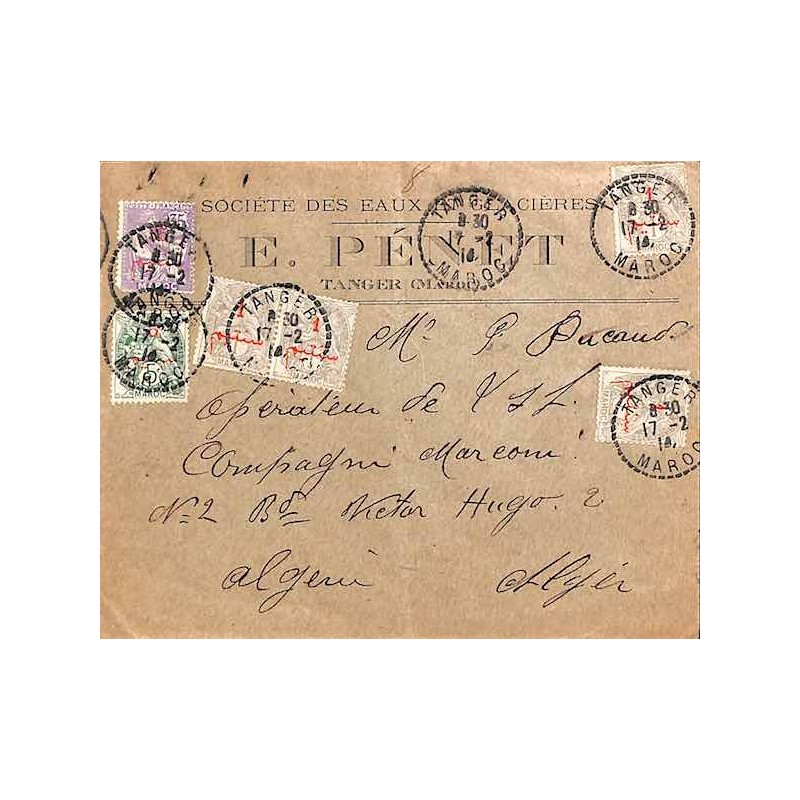 8
SOCIÉTÉ DES EAUX CIÈRES
E. PÉNET
TANGER (MAROC)
TANGER
8 30
17 -2
14
MAROC
TANGER
8 30
17 -2
14
MAROC
TANGER
8 30
17 -2
14
MAROC
TANGER
17 -2
14
MAROC
TANGER
8 30
17 -2
14
TANGER
8 30
17 -2
14
MAROC
35
MAROC
5
MAROC
1
1
1
Mr P.
Opérateur de T S F.
Compagni Marconi
No 2 Bd Victor Hugo. 2
Algérie Alger